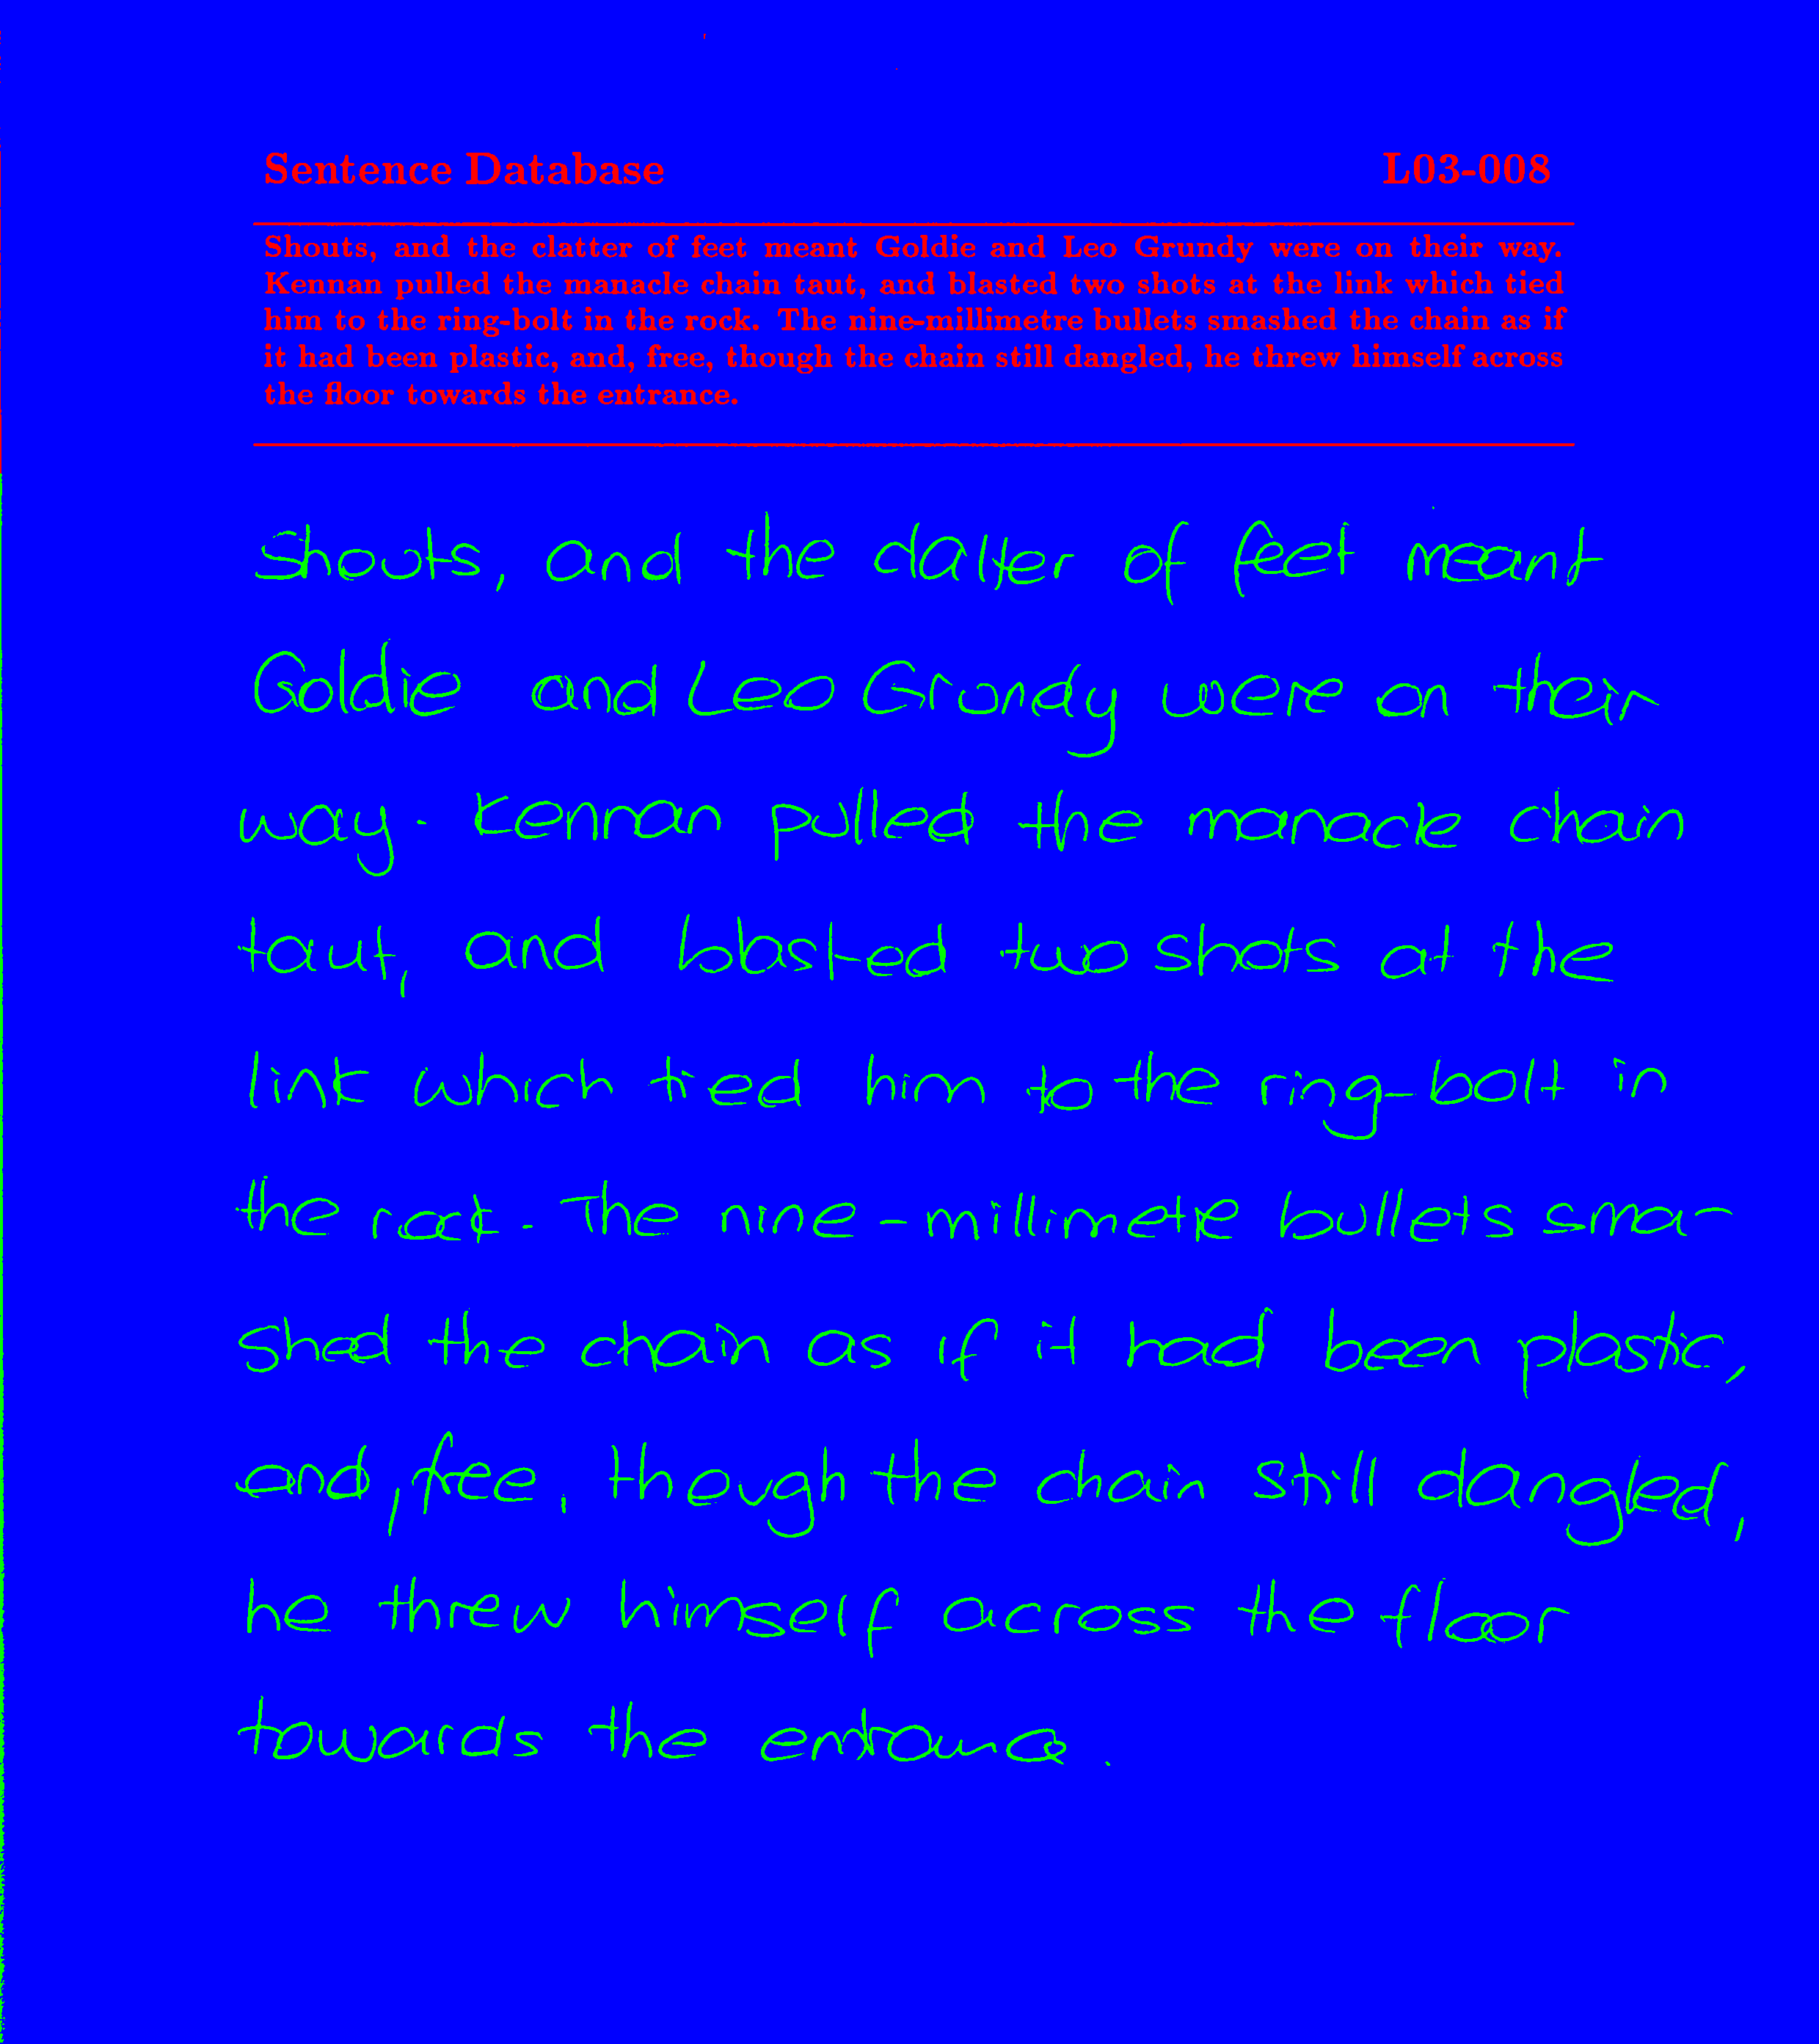 Sentence Database L03-008
Shouts, and the clatter of feet meant Goldie and Leo Grundy were on their way.
Kennan pulled the manacle chain taut, and blasted two shots at the link which tied
him to the ring-bolt in the rock. The nine-millimetre bullets smashed the chain as if
it had been plastic, and, free, though the chain still dangled, he threw himself across
the floor towards the entrance.
Shouts, and the clatter of feet meant
Goldie and Leo Grundy were on their
way. Kennan pulled the manacle chain
taut, and blasted two shots at the
link which tied him to the ring-bolt in
the rock. The nine-millimetre bullets sma-
shed the chain as if it had been plastic,
and, free, though the chain still dangled,
he threw himself across the floor
towards the entrance.